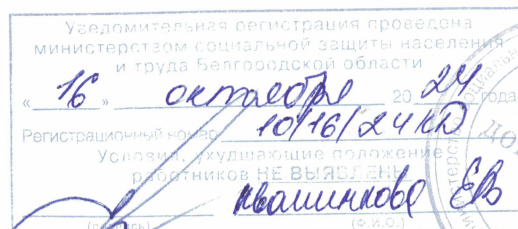 Уведомительная регистрация проведена
министерством социальной защиты населения
и труда Белгородской области
« 16 » октября 20 24 года
Регистрационный номер 10/16/24КД
Условия, ухудшающие положение
работников НЕ ВЫЯВЛЕНЫ
ЕВ
(подпись) (Ф.И.О.)